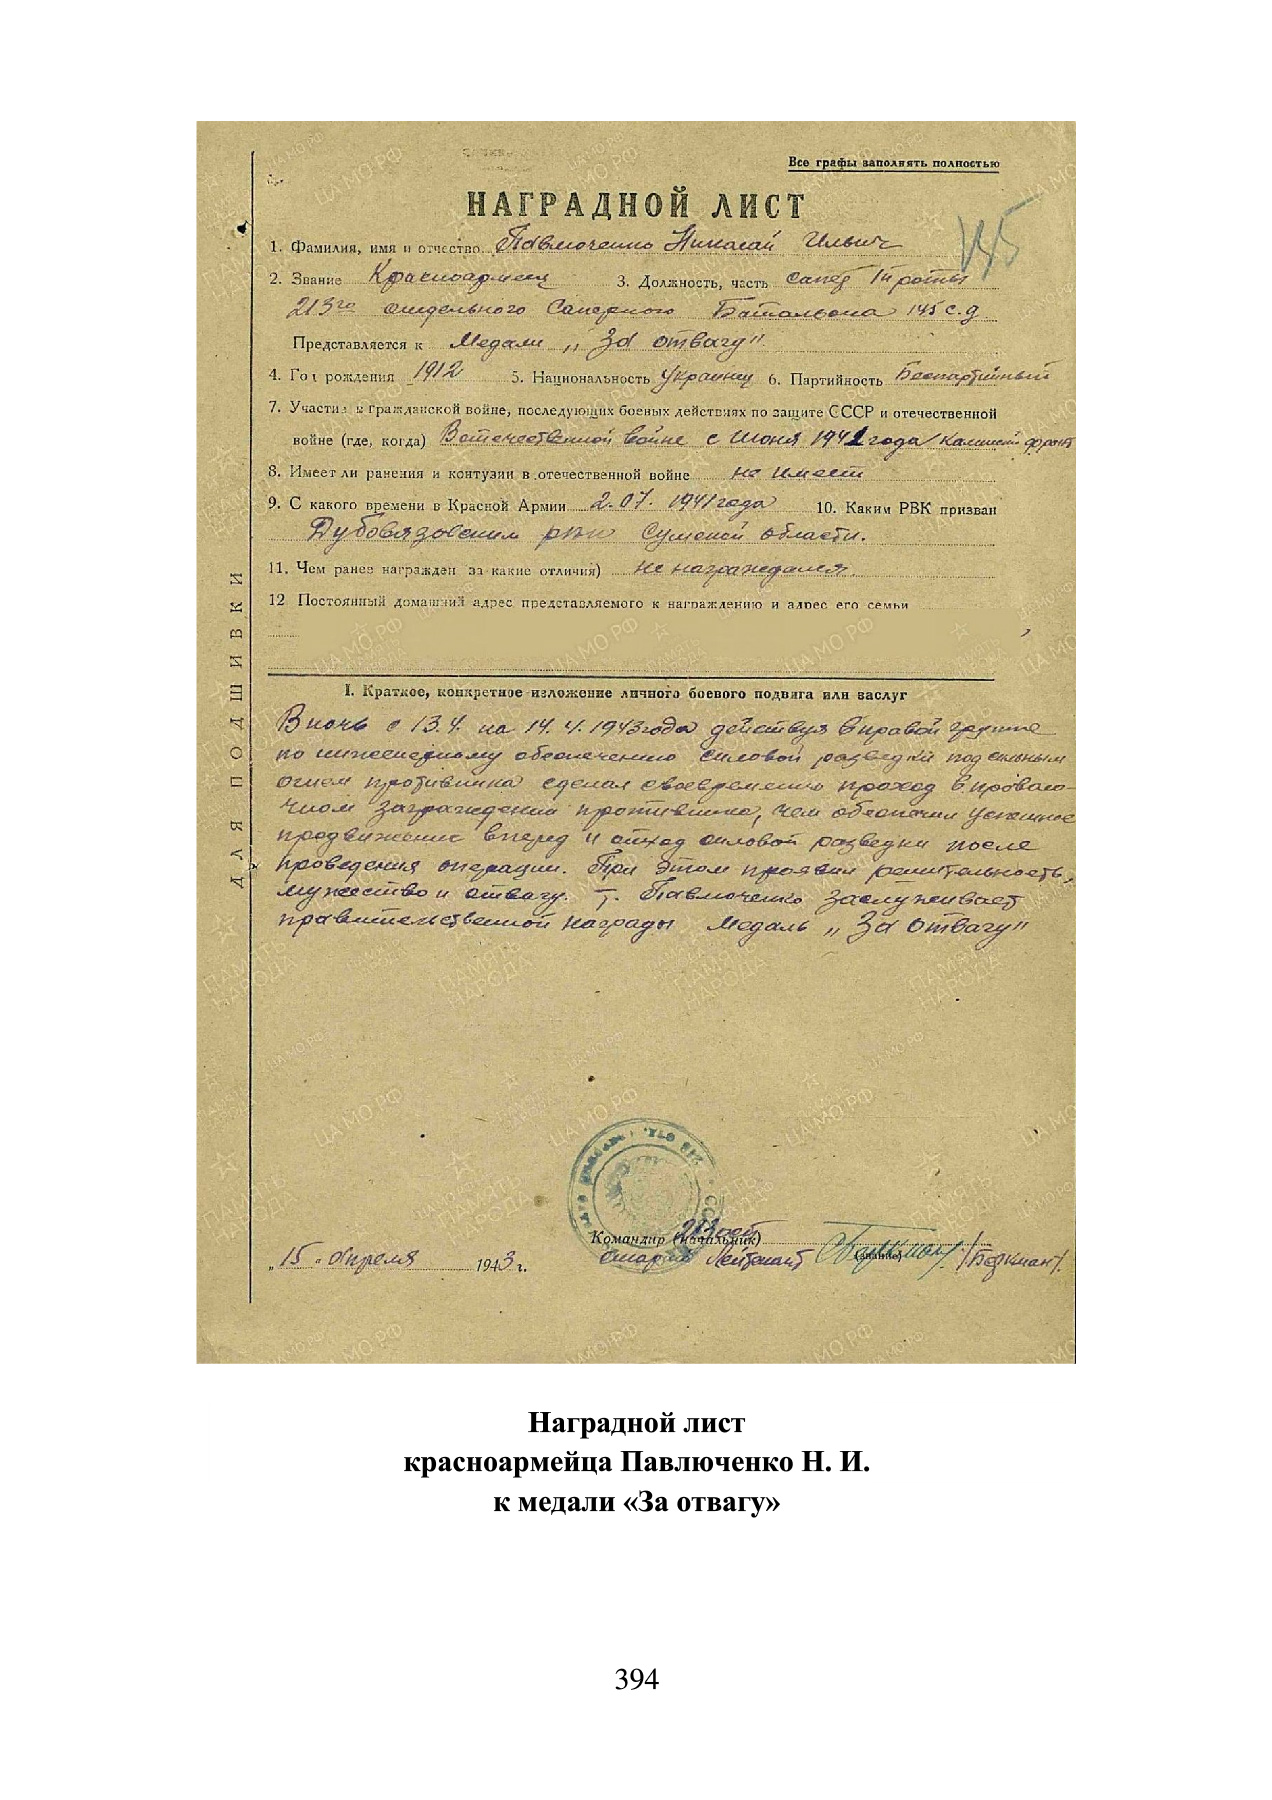 Все графы заполнять полностью
НАГРАДНОЙ ЛИСТ
145
1. Фамилия, имя и отчество Павлюченко Николай Ильич
2. Звание Красноармеец 3. Должность, часть сапер 1й роты
213го отдельного Саперного Батальона 145 с.д.
Представляется к Медали „За отвагу"
4. Год рождения 1912 5. Национальность Украинец 6. Партийность Беспартийный
7. Участие в гражданской войне, последующих боевых действиях по защите СССР и отечественной
войне (где, когда) В отечественной войне с Июня 1942 года /Калинский фронт
8. Имеет ли ранения и контузии в отечественной войне не имеет
9. С какого времени в Красной Армии 2.07.1941 года 10. Каким РВК призван
Дубовязовским рвк Сумской области.
11. Чем ранее награжден за какие отличия) не награждался
12 Постоянный домашний адрес представляемого к награждению и адрес его семьи
I. Краткое, конкретное изложение личного боевого подвига или заслуг
В ночь с 13.4. на 14.4.1943 года действуя в правой группе
по инженерному обеспечению силовой разведки под сильным
огнем противника сделал своевременно проход в проволо-
чном заграждении противника, чем обеспечил успешное
продвижение вперед и отход силовой разведки после
проведения операции. При этом проявил решительность,
мужество и отвагу. т. Павлюченко заслуживает
правительственной награды Медаль „За отвагу"
ДЛЯ ПОДШИВКИ
Командир (начальник) 213 осб
„15" апреля 1943 г. старш. Лейтенант (звание) /Беркман/.
Наградной лист
красноармейца Павлюченко Н. И.
к медали «За отвагу»
394